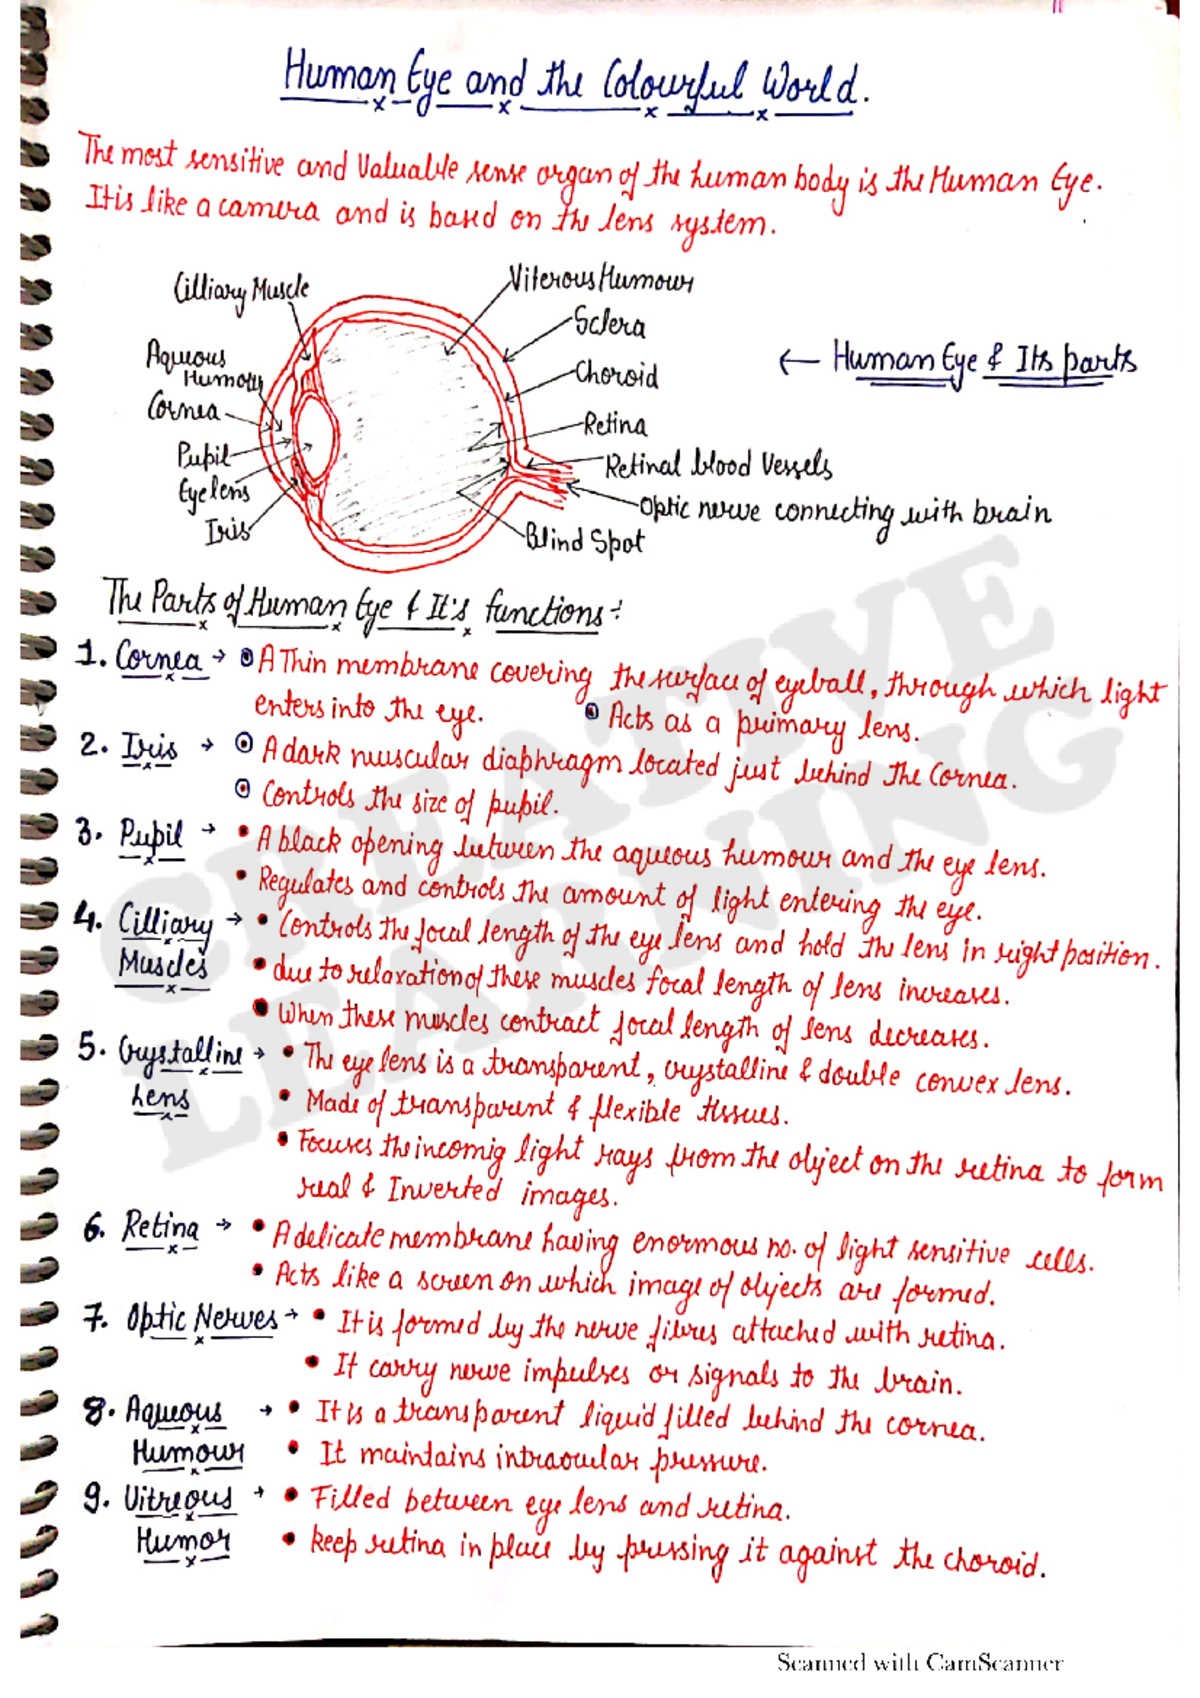 Human Eye and the Colourful World.
The most sensitive and Valuable sense organ of the human body is the Human Eye.
It is like a camera and is based on the lens system.
Cilliary Muscle
Viterous Humour
Sclera
Aqueous
Humour
Choroid
← Human Eye & Its parts
Cornea
Retina
Pupil
Retinal blood Vessels
Eye lens
Optic nerve connecting with brain
Iris
Blind Spot
The Parts of Human Eye & It's functions:-
1. Cornea → A Thin membrane covering the surface of eyeball, through which light
enters into the eye. Acts as a primary lens.
2. Iris → A dark muscular diaphragm located just behind the Cornea.
Controls the size of pupil.
3. Pupil → • A black opening between the aqueous humour and the eye lens.
• Regulates and controls the amount of light entering the eye.
4. Cilliary → • Controls the focal length of the eye lens and hold the lens in right position.
Muscles • due to relaxation of these muscles focal length of lens increases.
• When these muscles contract focal length of lens decreases.
5. Crystalline → • The eye lens is a transparent, crystalline & double convex lens.
Lens • Made of transparent & flexible tissues.
• Focuses the incomig light rays from the object on the retina to form
real & Inverted images.
6. Retina → • A delicate membrane having enormous no. of light sensitive cells.
• Acts like a screen on which image of objects are formed.
7. Optic Nerves → • It is formed by the nerve fibres attached with retina.
• It carry nerve impulses or signals to the brain.
8. Aqueous → • It is a transparent liquid filled behind the cornea.
Humour • It maintains intraocular pressure.
9. Vitreous → • Filled between eye lens and retina.
Humor • keep retina in place by pressing it against the choroid.
CREATIVE
LEARNING
Scanned with CamScanner